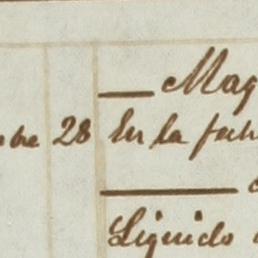 Maq
bre 28 En la fech
Liquido